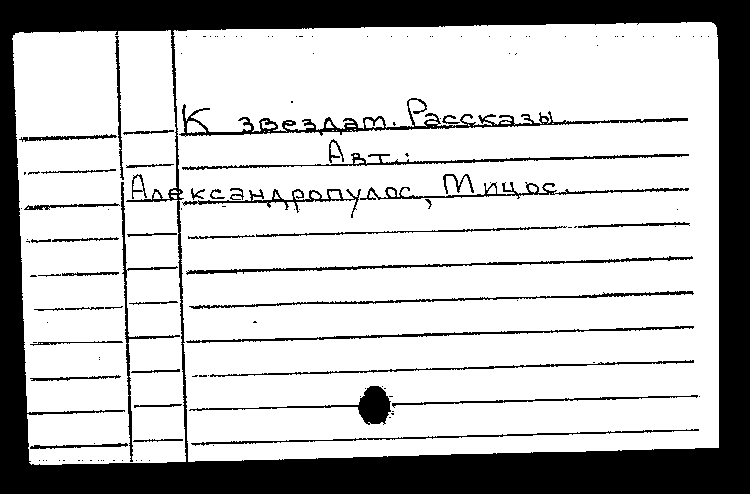 К звездам. Рассказы.
Авт.:
Александропулос, Мицос.